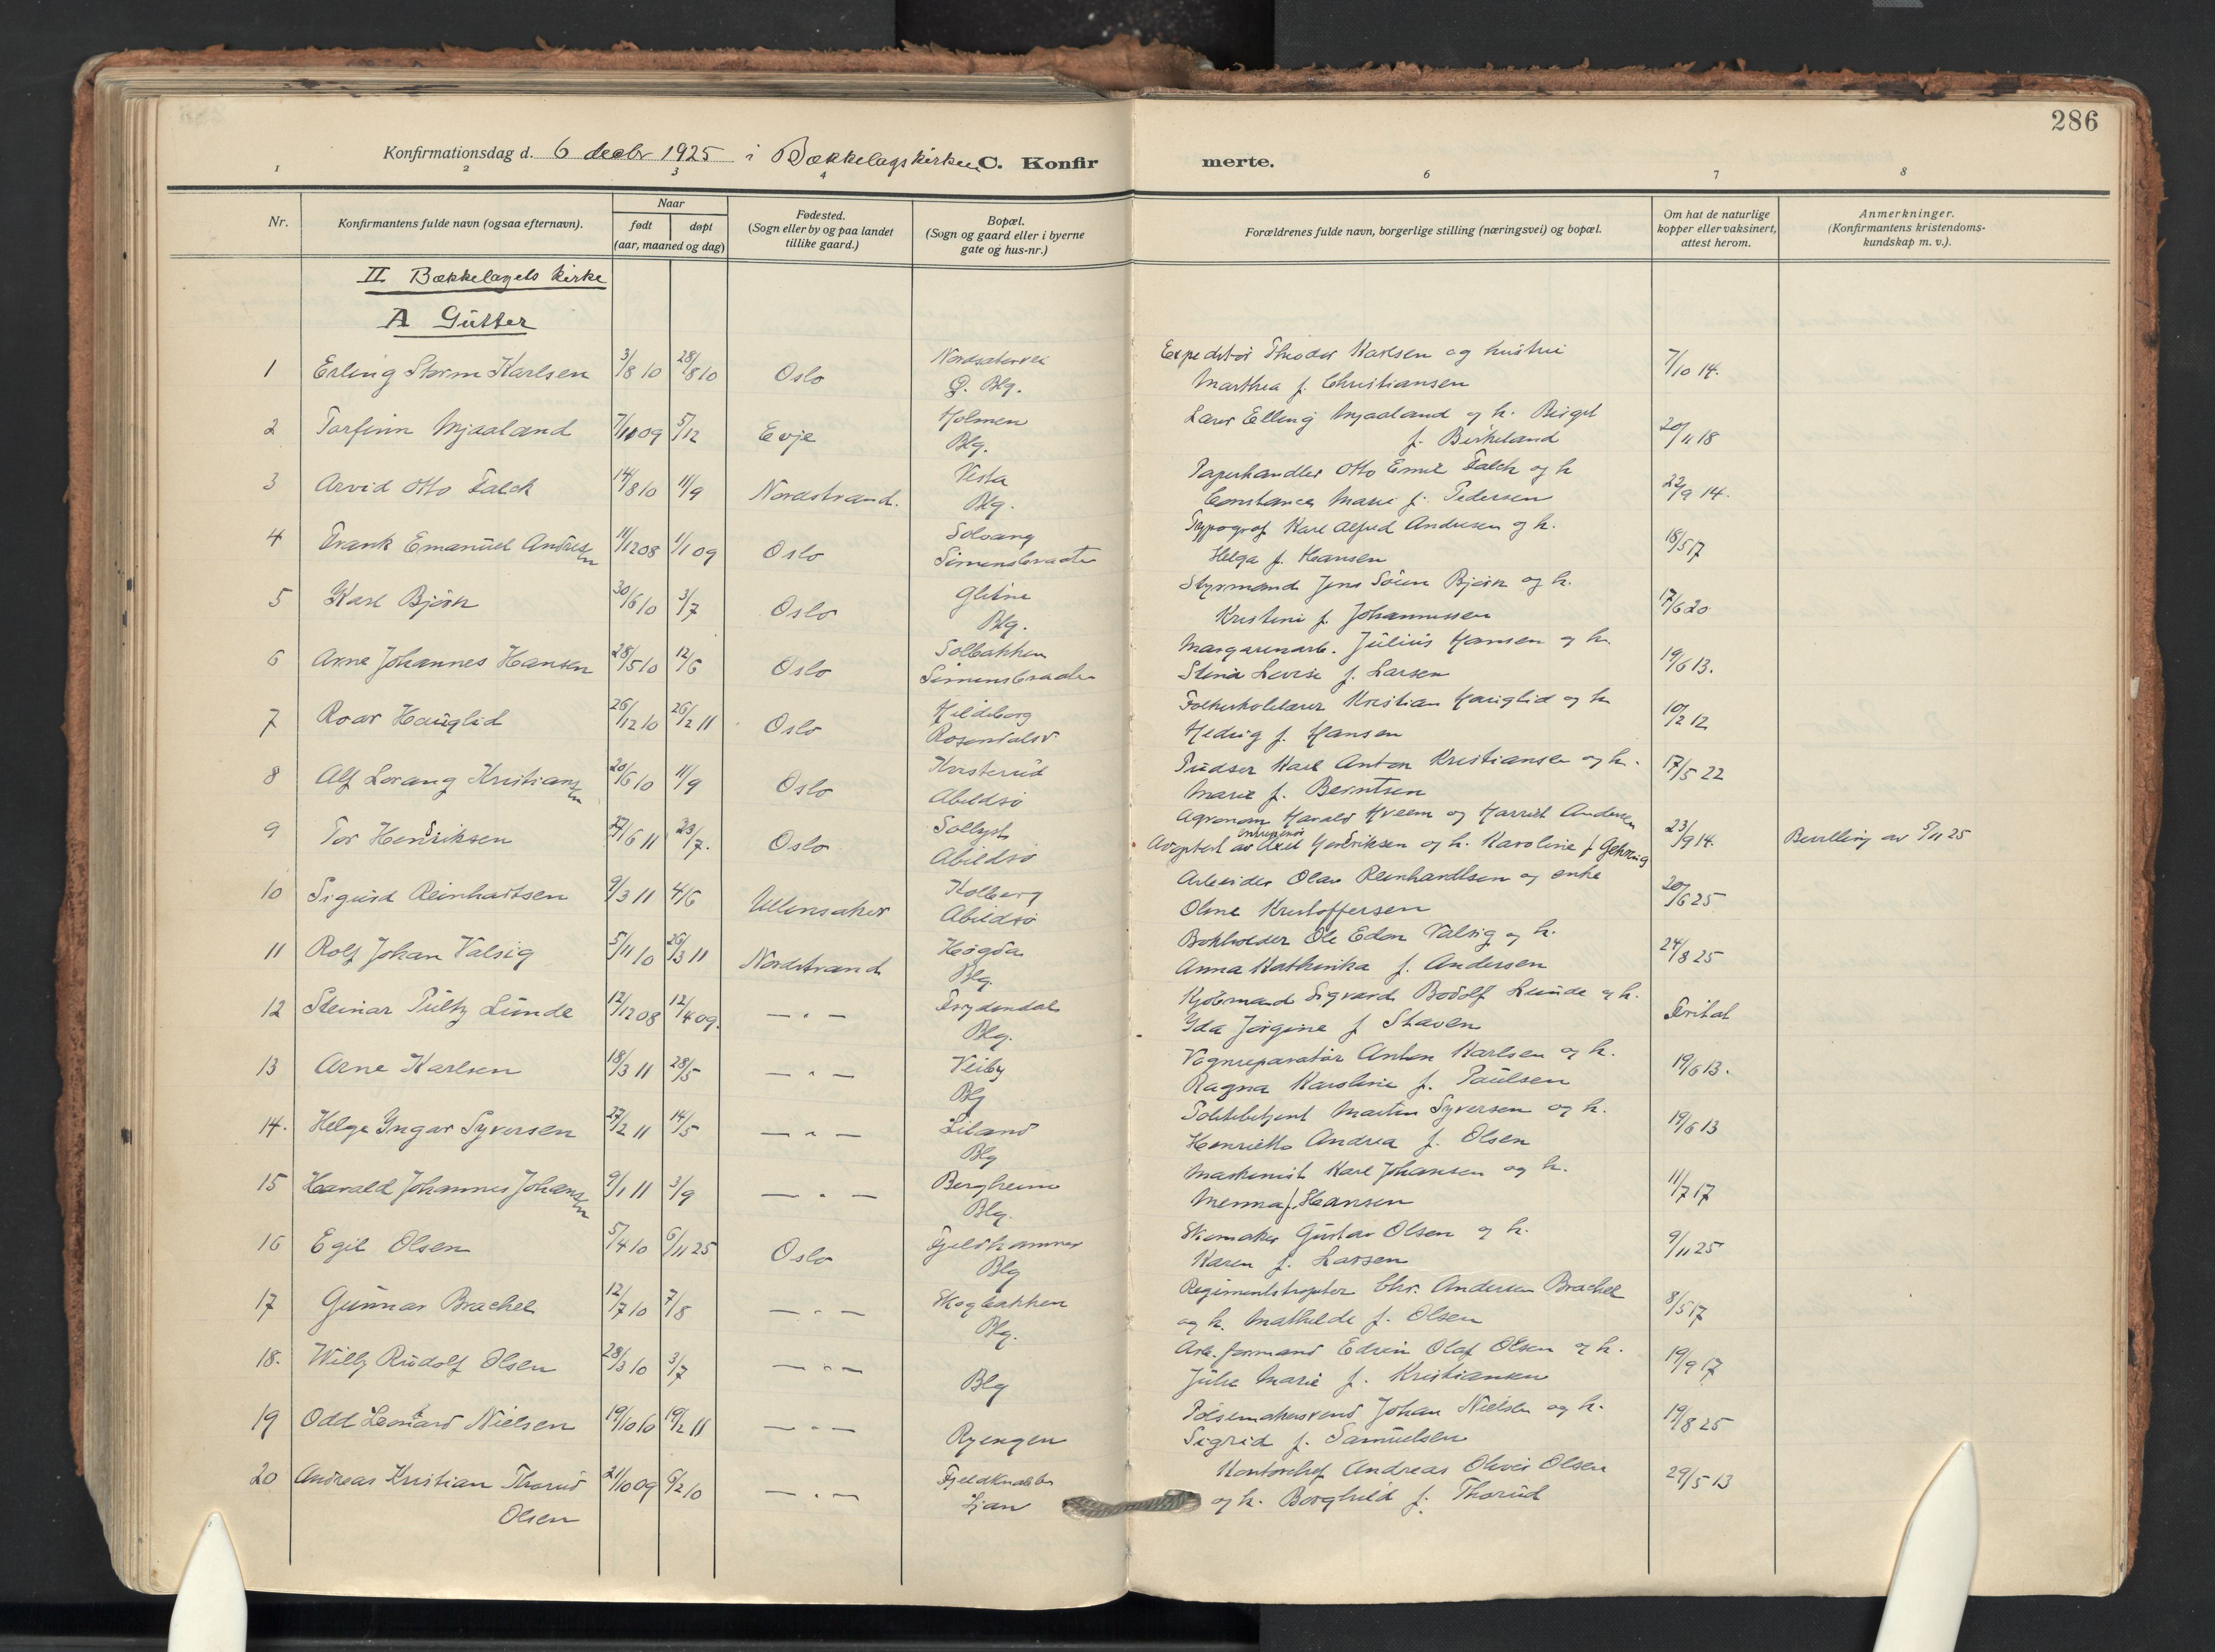 286
Konfirmationsdag d. 6 decbr 1925 i Bækkelagskirken C. Konfirmerte.
1 2 3 4 6 7 8
Nr.
Konfirmantens fulde navn (ogsaa efternavn).
Naar
født døpt
(aar, maaned og dag)
Fødested.
(Sogn eller by og paa landet
tillike gaard.)
Bopæl.
(Sogn og gaard eller i byerne
gate og hus-nr.)
Forældrenes fulde navn, borgerlige stilling (næringsvei) og bopæl.
Om hat de naturlige
kopper eller vaksinert,
attest herom.
Anmerkninger.
(Konfirmantens kristendoms-
kundskap m. v.).
II Bækkelagets kirke
A Gutter
1 Erling Storm Karlsen 3/8 10 28/8 10 Oslo Nordsætervei Expeditør Theodor Karlsen og hustru 7/10 14.
Blg. Marthea f. Christiansen
2 Torfinn Mjaaland 7/11 09 5/12 Evje Holmen Lærer Elling Mjaaland og h. Birgit 20/11 18
Blg. f. Birkeland
3 Arvid Otto Falck 14/8 10 11/9 Nordstrand. Vesta Papirhandler Otto Emil Falck og h 22/9 14.
Blg. Constance Marie f. Pedersen
4 Frank Emanuel Andresen 11/12 08 1/1 09 Oslo Solvang Typograf Karl Alfred Andresen og h. 18/5 17
Simensbraaten Helga f. Hansen
5 Karl Bjørk 30/6 10 3/7 Oslo Glitne Styrmand Jens Søren Bjørk og h. 17/6 20
Blg. Kristine f. Johannessen
6 Arne Johannes Hansen 28/5 10 12/6 Oslo Solbakken Margarinarb. Julius Hansen og h. 19/6 13.
Simensbraaten Stina Lovise f. Larsen
7 Roar Hauglid 26/12 10 26/2 11 Oslo Hildeborg Folkeskolelærer Kristian Hauglid og h 10/2 12
Rosendalsv. Hedvig f. Hansen
8 Alf Lorang Kristiansen 20/6 10 11/9 Oslo Pudser Karl Anton Kristiansen og h. 17/5 22
Abildsø Marie f. Berntsen
9 Tor Hendriksen 27/6 11 23/7. Oslo Sollyst Agronom Harald Hveem og Harriet Andersen 23/9 14. Bevilling av 5/11 25
Abildsø Adoptert av Axel Hendriksen og h. Karoline f Gehring
10 Sigurd Reinhartsen 9/3 11 4/6 Ullensaker Kolberg Arbeider Olav Reinhardtsen og enke 20/6 25
Abildsø Oline Kristoffersen
11 Rolf Johan Valsig 5/11 10 26/3 11 Nordstrand Høgda Bokholder Ole Edon Valsig og h. 24/8 25
Blg. Anna Kathinka f. Andersen
12 Steinar Pultz Lunde 12/12 08 12/4 09. — " — Frydendal Kjøbmand Sigvard Bodolf Lunde og h. Fritat
Blg. Yda Jørgine f Staven
13 Arne Karlsen 18/3 11 28/5 — " — Veiby Vognreparatør Anton Karlsen og h. 19/6 13.
Blg Ragna Karoline f. Paulsen
14. Helge Yngvar Syversen 27/2 11 14/5 — " — Liland Politibetjent Martin Syversen og h. 19/6 13
Blg Henriette Andrea f. Olsen
15 Harald Johannes Johansen 9/1 11 3/9 — " — Bergheim Maskinist Karl Johansen og h. 11/7 17
Blg. Menna f. Hansen
16 Egil Olsen 5/4 10 6/11 25 Oslo Fjeldhammer Skomaker Gustav Olsen og h. 9/11 25
Blg Karen f. Larsen
17 Gunnar Brachel 12/7 10 7/8 — " — Skogbakken Chr. Andersen Brachel 8/5 17
Blg. og h. Mathilde f. Olsen
18. Willy Rudolf Olsen 28/3 10 3/7 — " — Blg Arb. formand Edvin Olaf Olsen og h. 19/9 17
Julie Marie f. Kristiansen
19 Odd Leonard Nielsen 19/10 10 19/2 11 — " — Ryengen Pølsemakersvend Johan Nielsen og h. 19/8 25
Sigrid f. Samuelsen
20 Andreas Kristian Thorud 21/10 09 6/2 10 — " — Fjeldknabben Kontorchef Andreas Oliver Olsen 29/5 13
Olsen Ljan og h. Borghild f. Thorud